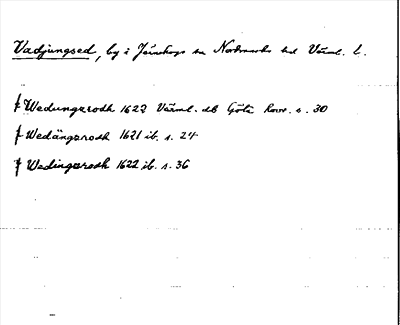 Vadjungsed, by i Järnskogs sn Nordmarks hd Värml. l.
f Wedungsrodh 1623 Värml. db Göta Kom. s. 30
f Wedängzrodh 1621 ib. s. 24
f Wedingzrodh 1622 ib. s. 36